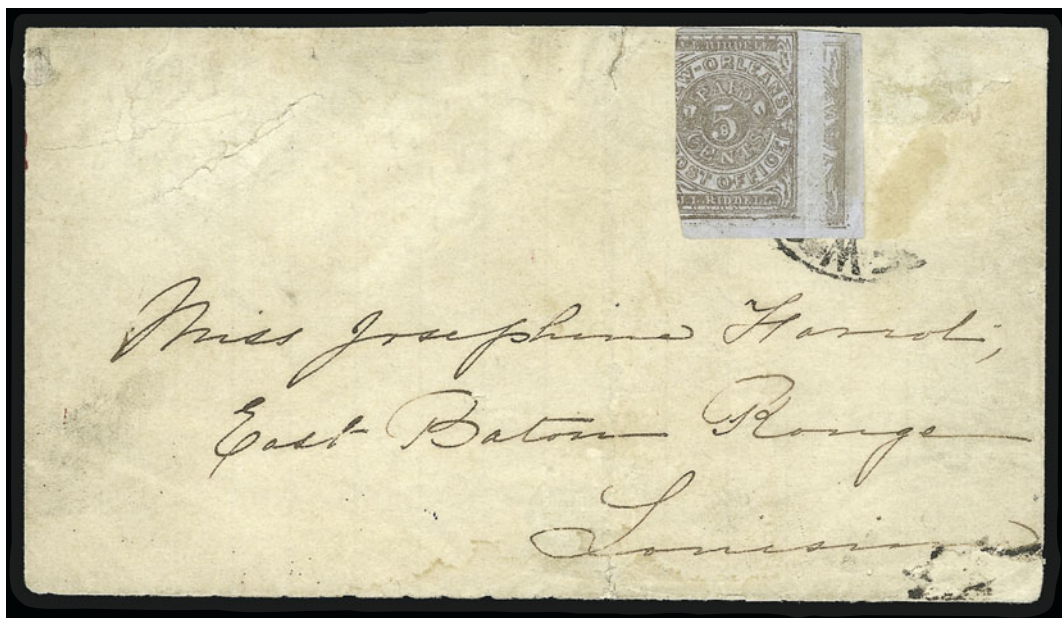 RIDDELL
W-ORLEANS
PAID
5
CENTS
OST OFFICE
J.L.RIDDELL.
Miss Josephine
East Baton Rouge
Louisiana